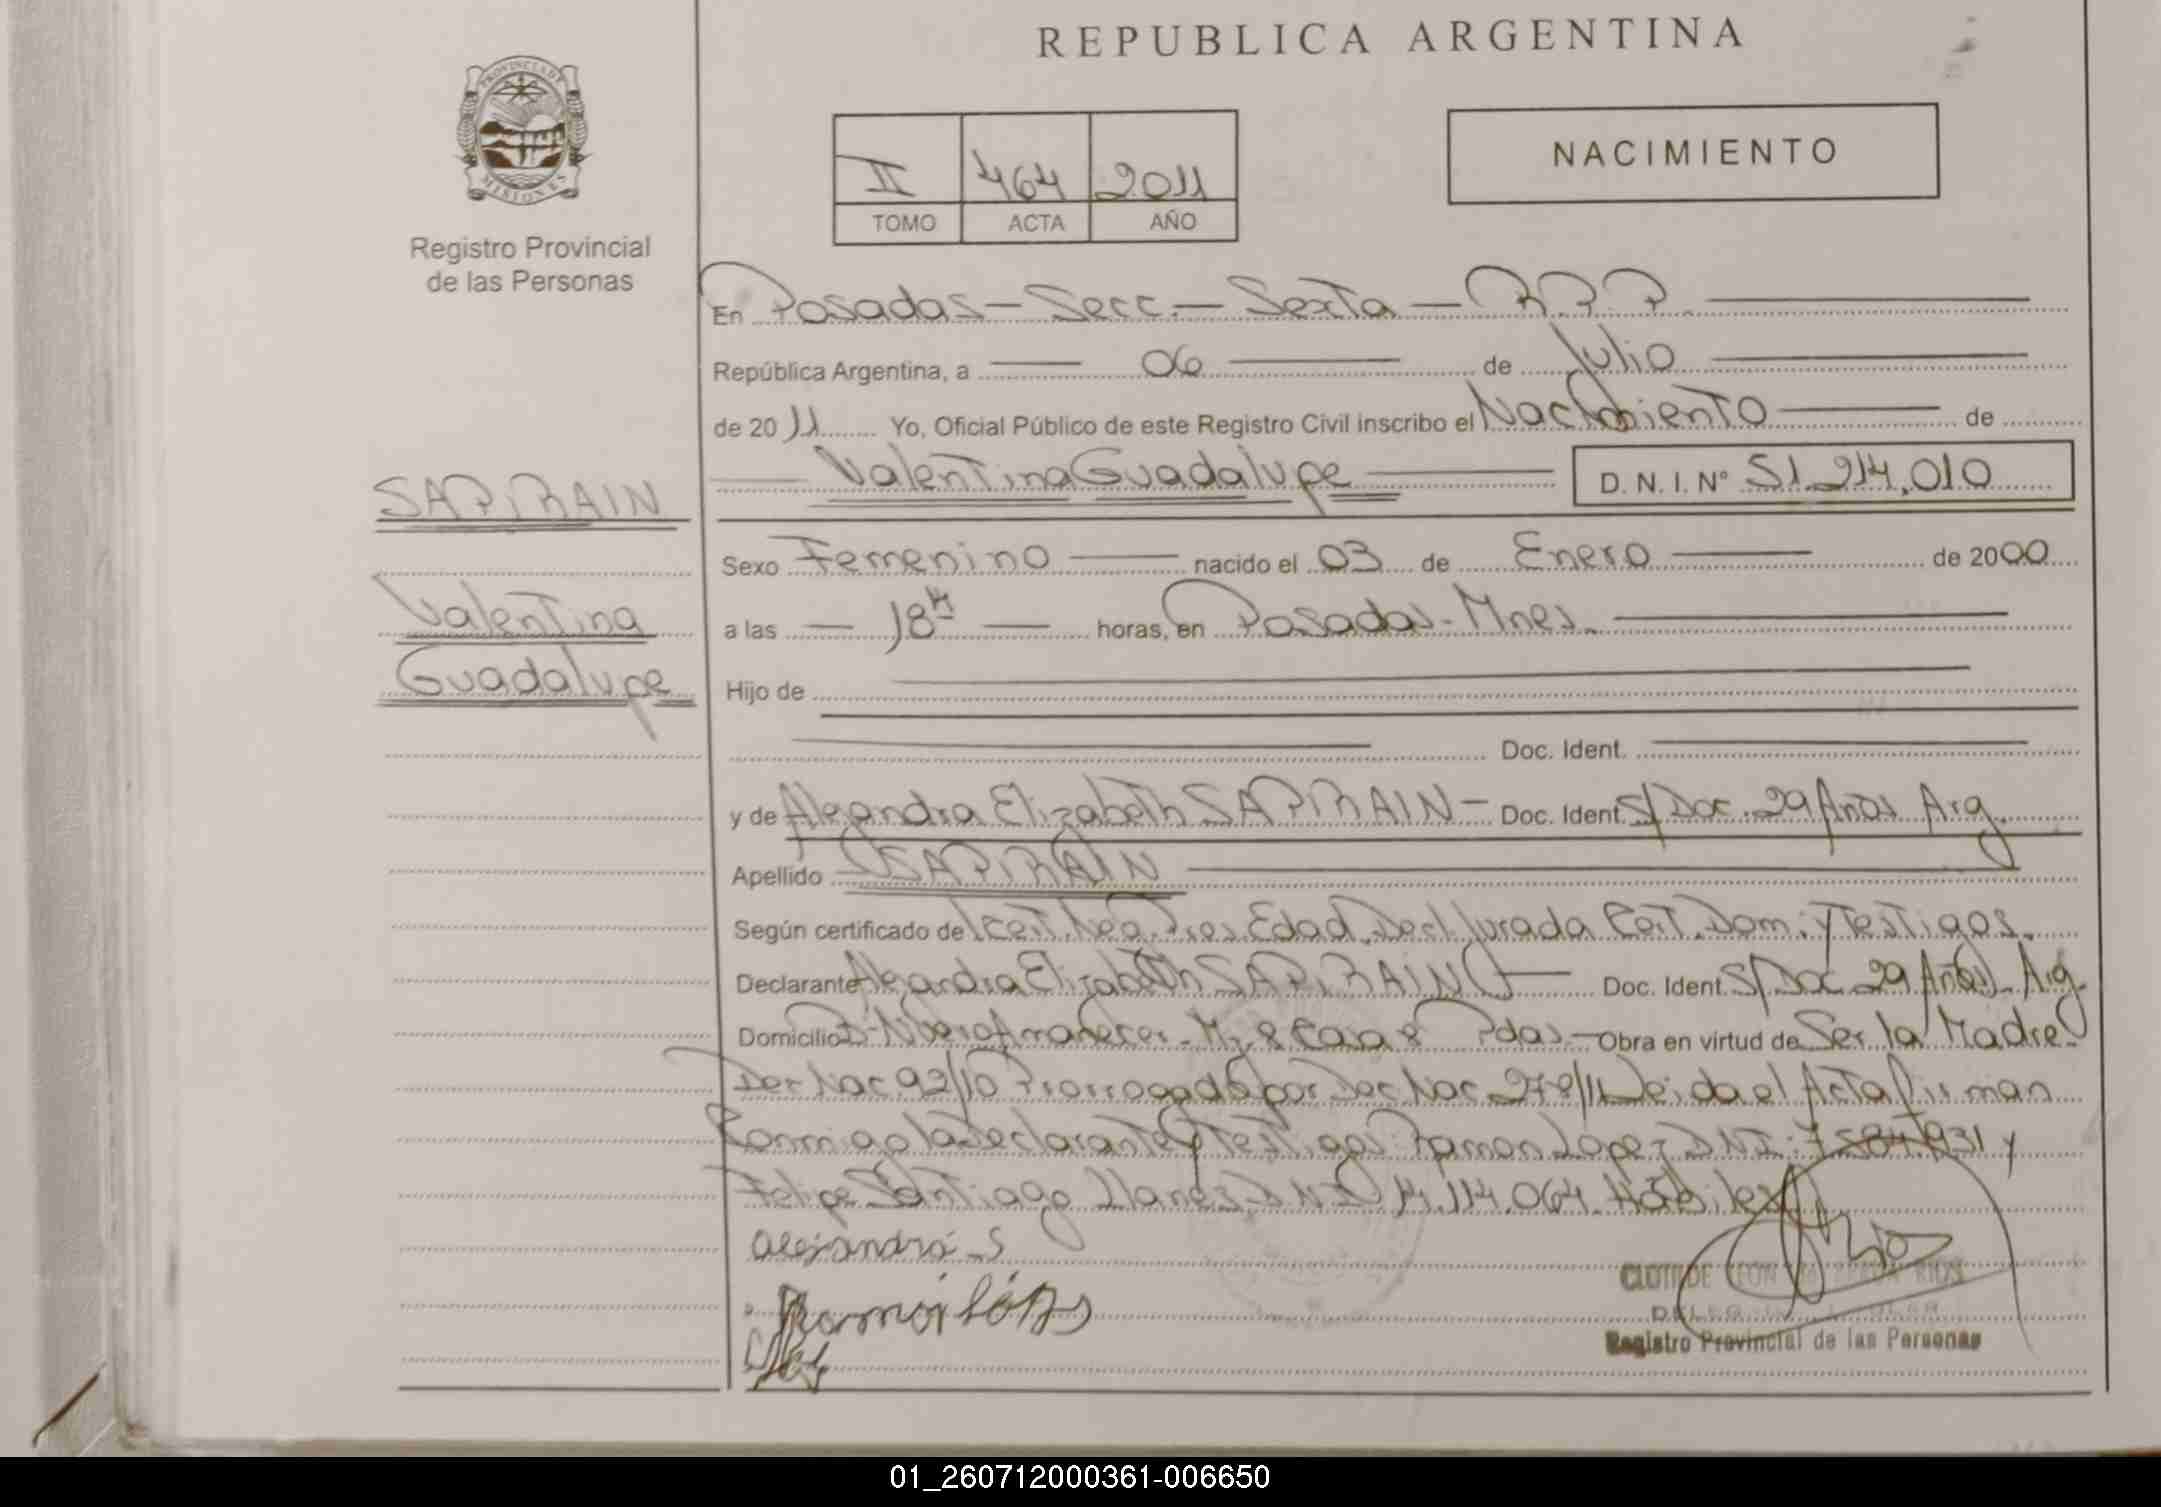 REPUBLICA ARGENTINA
PROVINCIA DE MISIONES
Registro Provincial
de las Personas
II 464 2011
TOMO ACTA AÑO
NACIMIENTO
En Posadas - Secc. - Sexta - R.P.P.
República Argentina, a 06 de Julio
de 2011 Yo, Oficial Público de este Registro Civil inscribo el Nacimiento de
Valentina Guadalupe D. N. I. Nº 51.214.010
SAPIRAIN
Valentina
Guadalupe
Sexo Femenino nacido el 03 de Enero de 2000
a las 18 hs horas, en Posadas - Mnes.
Hijo de
Doc. Ident.
y de Alejandra Elizabeth SAPIRAIN - Doc. Ident. S/Doc. 29 Años Arg.
Apellido SAPIRAIN
Según certificado de Cert. Neg. Pres. Edad. Decl. Jurada Cert. Dom. y Testigos.
Declarante Alejandra Elizabeth SAPIRAIN Doc. Ident. S/Doc 29 Años. Arg.
Domicilio Bº Nuevo Amanecer - Mz. 8 Casa 8 Pdas. - Obra en virtud de Ser la Madre.
Dec Nac 92/10 Prorrogado por Dec Nac 278/11 Leida el Acta firman
Conmigo la Declarante y testigos: Ramon Lopez DNI: 7584.931 y
Felipe Santiago Llanes DNI 14.114.064. Hábiles
Alejandra S
Ramon López
CLOTILDE LEON RIOS
Registro Provincial de las Personas
01_260712000361-006650